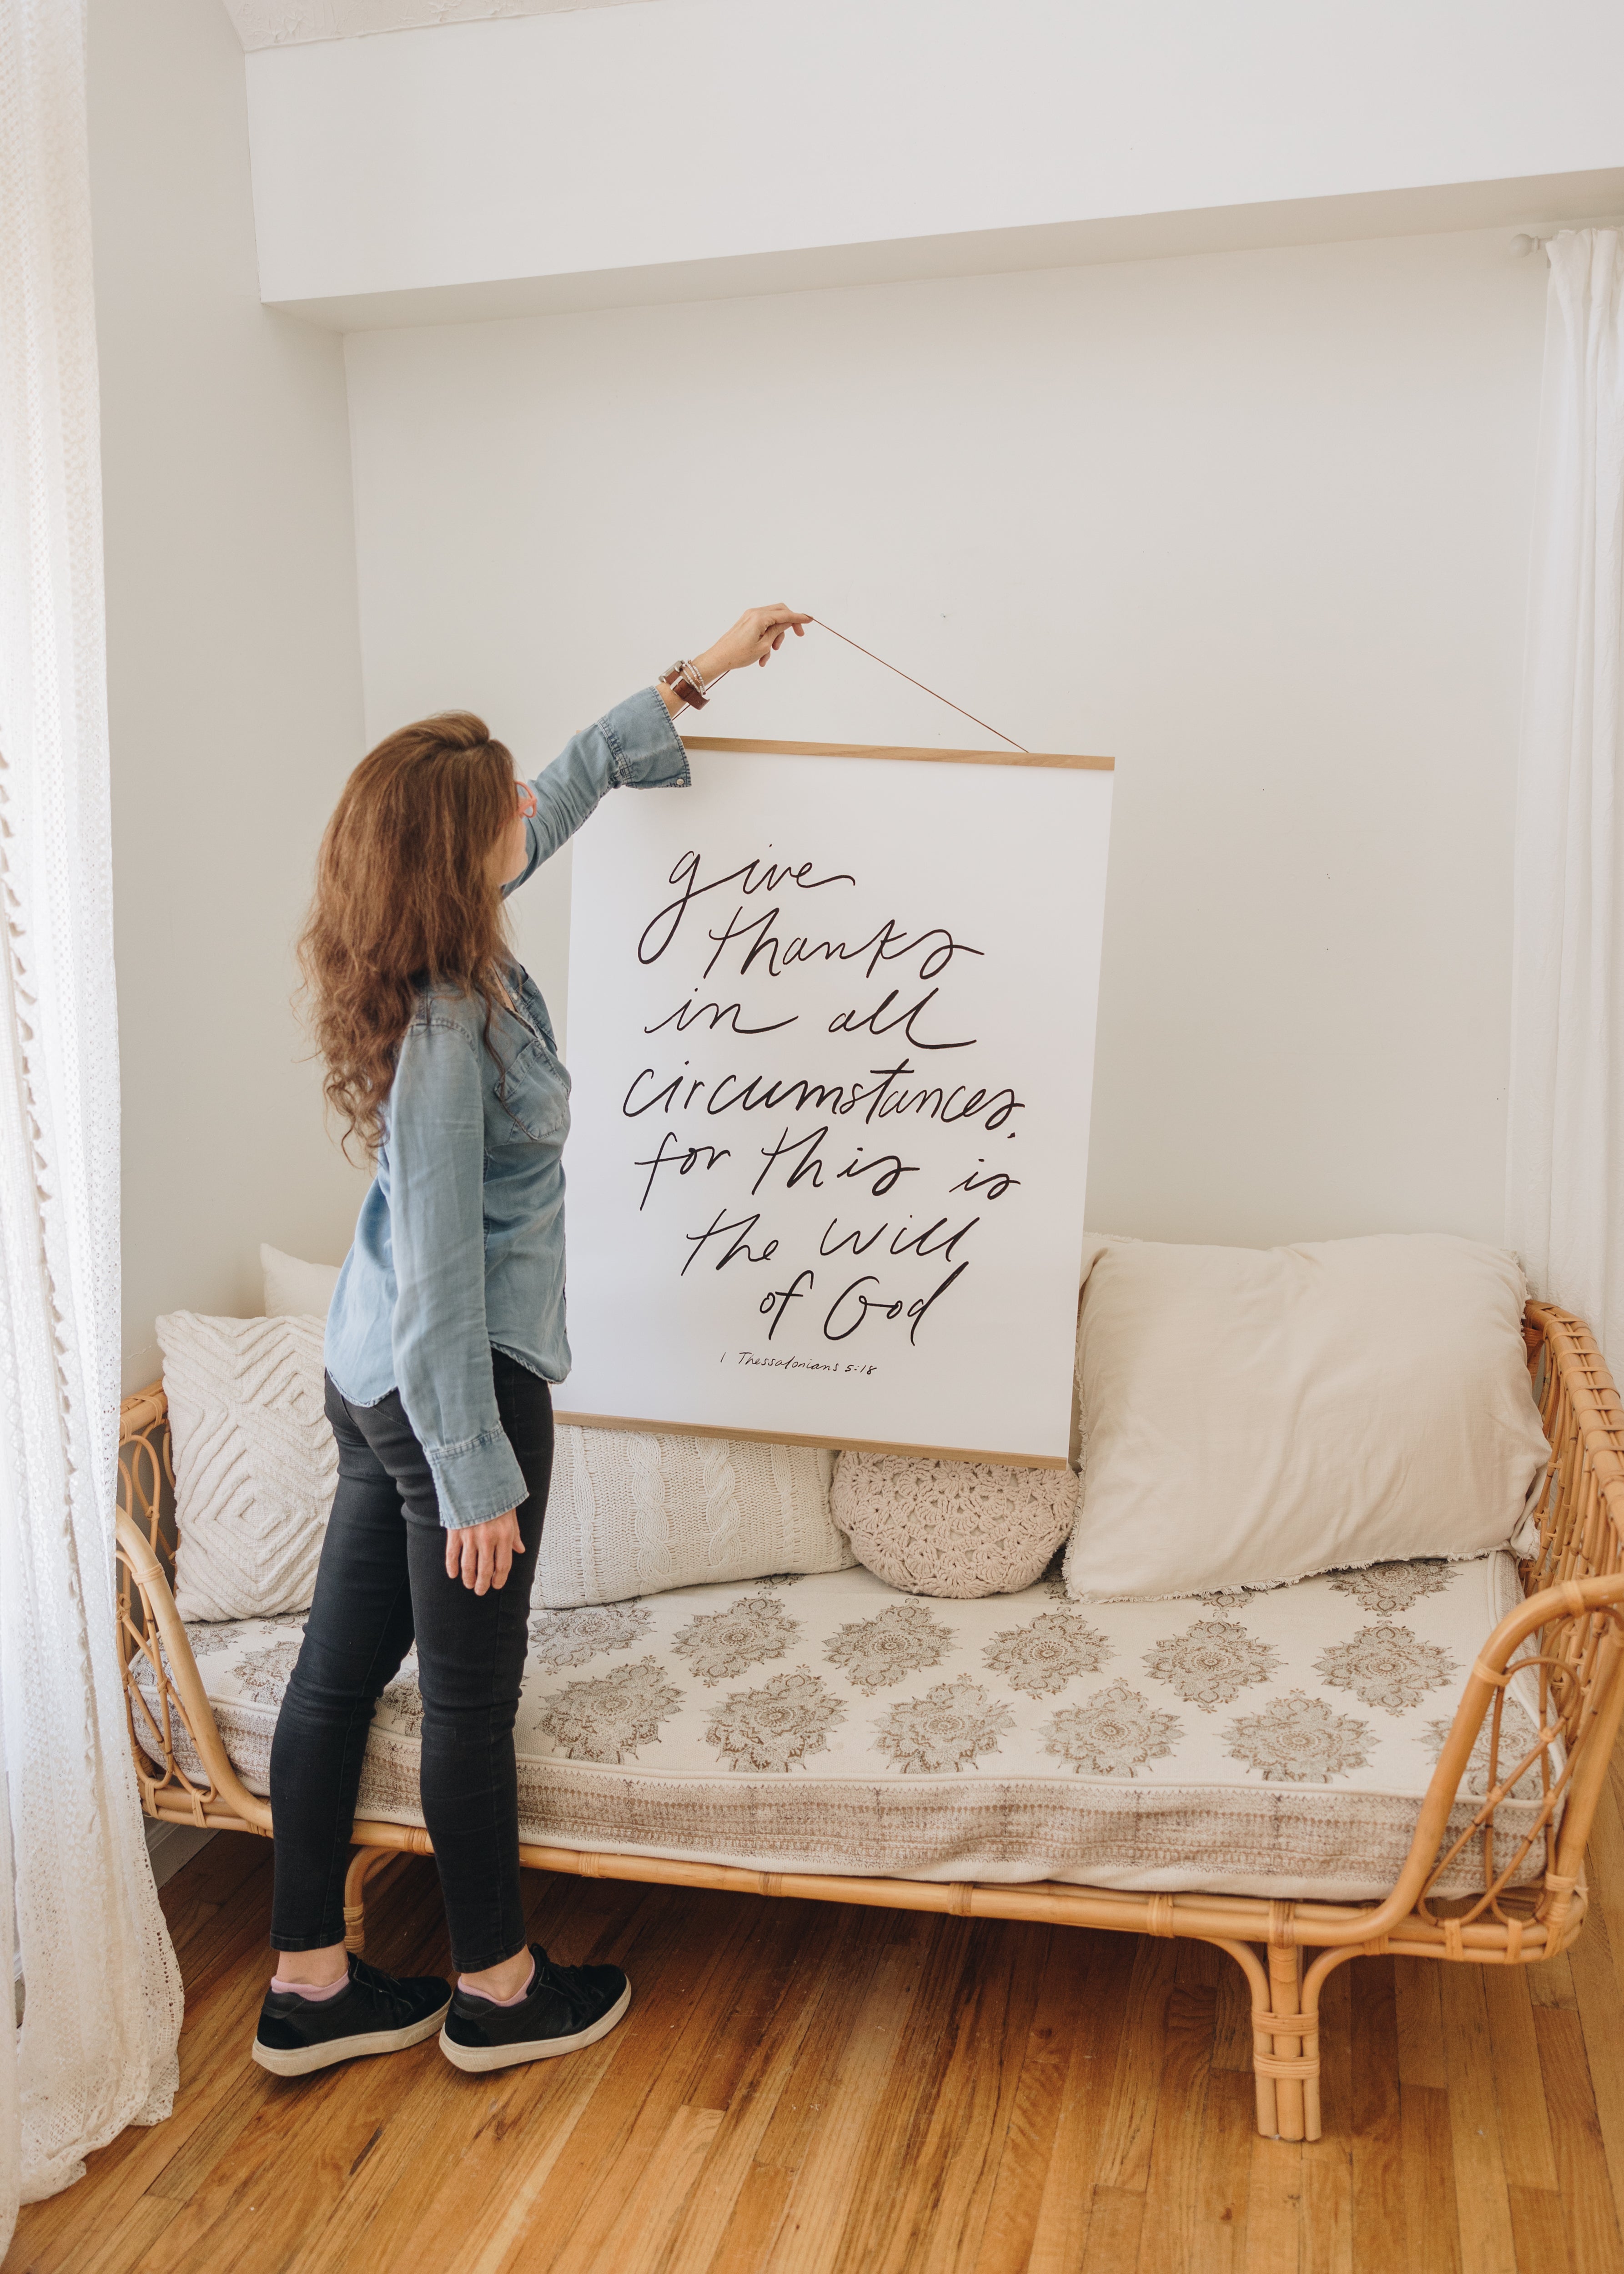 give
thanks
in all
circumstances,
for this is
the will
of God
1 Thessalonians 5:18